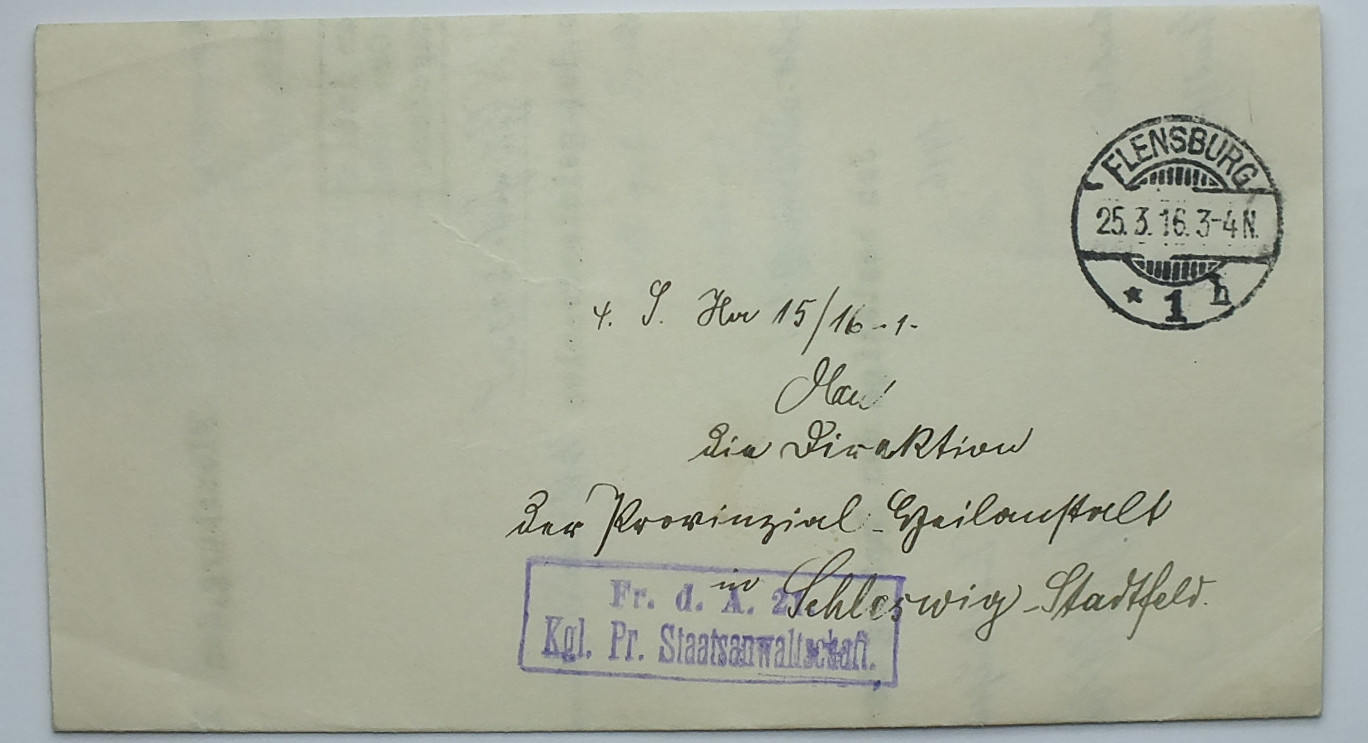 FLENSBURG
25.3.16.3-4N.
* 1 h
4. J. Na 15/16-1-
An
die Direktion
der Provinzial-Heilanstalt
in Schleswig-Stadtfeld.
Fr. d. A. 21.
Kgl. Pr. Staatsanwaltschaft.